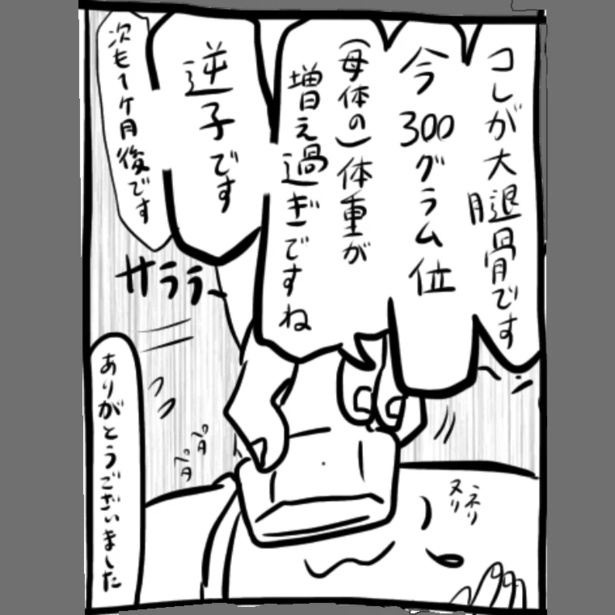 コレが大腿骨です
今300グラム位
(母体の)体重が
増え過ぎですね
逆子です
次も1ヶ月後です
サララ〜
ありがとうございました
ペタ
ペタ
ヌリ